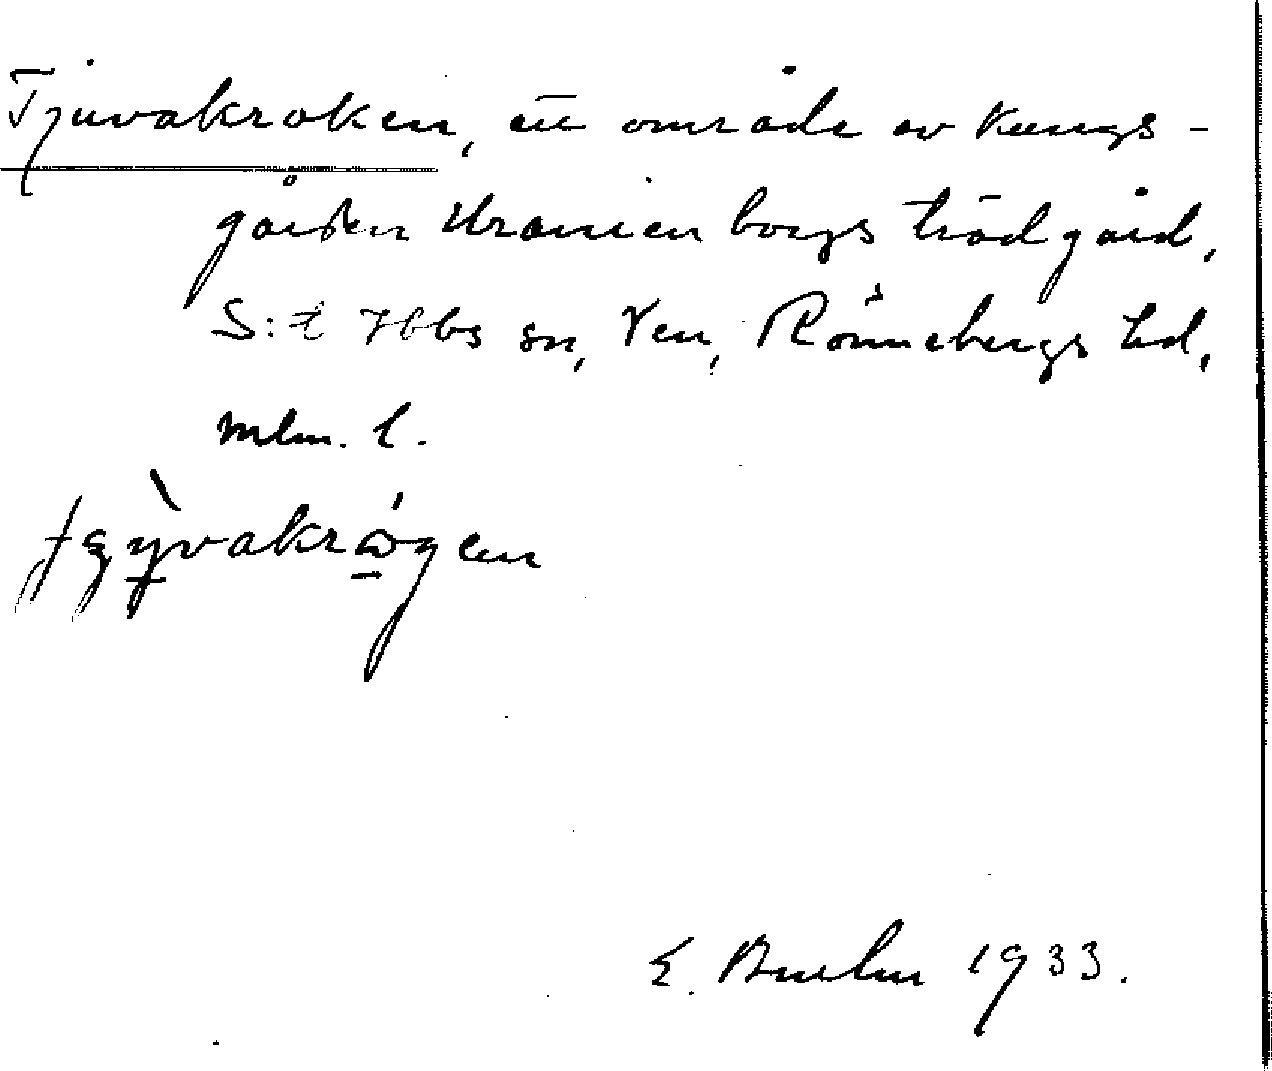 Tjuvakroken, ett område av Kungs-
gården Uranienborgs trädgård,
S:t Ibbs sn, Ven, Rönnebergs hd,
Mlm. l.
E. 1933.